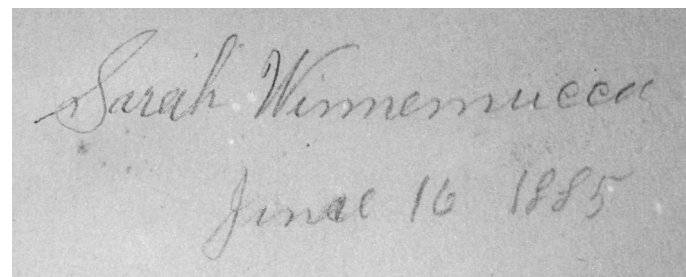 Sarah Winnemucca
June 16 1885